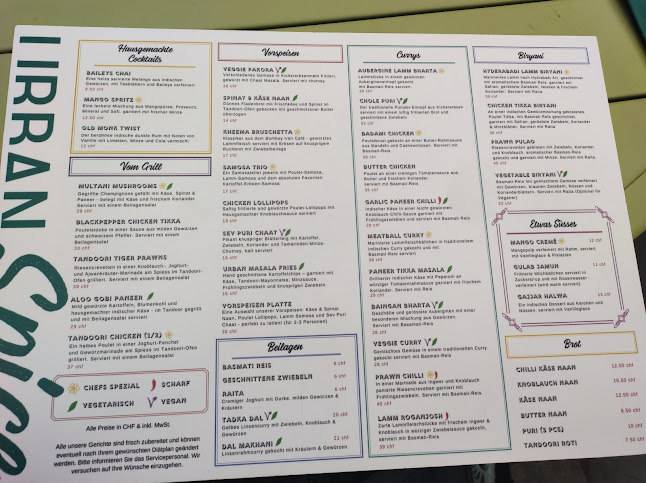 TIRRAN Spice
Hausgemachte
Cocktails
BAILEYS CHAI
Eine heiss servierte Melange aus indischen
Gewürzen, mit Teeblättern und Baileys verfeinert
9.50 chf
MANGO SPRITZ
Eine leckere Mischung aus Mangopüree, Prosecco,
Mineral und Saft, garniert mit frischer Minze
12.50 chf
OLD MONK TWIST
Der berühmte indische dunkle Rum mit Noten von
Vanille mit Limetten, Minze und Cola vermischt
12 chf
Vom Grill
MULTANI MUSHROOMS
Gegrillte Champignons gefüllt mit Käse, Spinat &
Paneer - belegt mit Käse und frischem Koriander.
Serviert mit einem Beilagensalat
29 chf
BLACKPEPPER CHICKEN TIKKA
Pouletstücke in einer Sauce aus milden Gewürzen
und schwarzem Pfeffer. Serviert mit einem
Beilagensalat
33 chf
TANDOORI TIGER PRAWNS
Riesencrevetten in einer Knoblauch-, Joghurt-
und Ajwankräuter-Marinade am Spiess im Tandoori-
Ofen grilliert. Serviert mit einem Beilagensalat
ALOO GOBI PANEER
Mild gewürzte Kartoffeln, Blumenkohl und
hausgemachter indischer Käse - im Tandoor gegrillt
und mit Beilagensalat serviert
29 chf
TANDOORI CHICKEN (1/2)
Ein halbes Poulet in einer Joghurt-Fenchel
und Gewürzmarinade am Spiess im Tandoori-Ofen
grilliert. Serviert mit einem Beilagensalat
37 chf
CHEFS SPEZIAL
SCHARF
VEGETARISCH
VEGAN
Alle Preise in CHF & inkl. MwSt.
Alle unsere Gerichte sind frisch zubereitet und können
eventuell nach ihrem gewünschten Diätplan geändert
werden. Bitte informieren Sie das Servicepersonal. Wir
versuchen auf Ihre Wünsche einzugehen.
Vorspeisen
VEGGIE PAKORA
Verschiedenes Gemüse in Kichererbsenmehl frittiert,
gewürzt mit Chaat Masala. Serviert mit chutney
SPINAT & KÄSE NAAN
Dünnes Fladenbrot mit Frischkäse und Spinat im
Tandoori-Ofen gebacken mit geschmolzener Butter
überzogen
14 chf
KHEEMA BRUSCHETTA
Klassiker aus dem Bombay Iran Café - gewürztes
Lammfleisch serviert mit Erbsen auf knusprigem
Ruckbrot mit Zwiebelbeilage
17 chf
SAMOSA TRIO
Ein Samosateller jeweils mit Poulet-Samosa,
Lamm-Samosa und dem absoluten Favoriten:
Kartoffel-Erbsen-Samosa
17 chf
CHICKEN LOLLIPOPS
Saftig frittierte und gewürzte Poulet-Lollipops mit
hausgemachter Knoblauchsauce serviert
SEV PURI CHAAT
Pikant knuspriger Blätterteig mit Kartoffel,
Zwiebeln, Koriander und Tamarinden-Minze-
Chutney, kalt serviert
URBAN MASALA FRIES
Handgeschnittene Kartoffelchips - garniert mit
Käse, Tandoori-Mayonnaise, Minzsauce,
Frühlingszwiebeln und knusprigen Zwiebeln
VORSPEISEN PLATTE
Eine Auswahl unserer Vorspeisen: Käse & Spinat
Naan, Poulet Lollipops, Lamm Samosa und Sev Puri
Chaat - perfekt zu teilen! (für 2-3 Personen)
Beilagen
BASMATI REIS
GESCHNITTENE ZWIEBELN
RAITA
Cremiger Joghurt mit Gurke, milden Gewürzen &
Kräutern
TADKA DAL
20 chf
Gelbes Linsencurry mit Zwiebeln, Knoblauch &
Gewürzen
DAL MAKHANI
21 chf
Linsenrahmcurry gekocht mit Kräutern & Gewürzen
Currys
AUBERGINE LAMM BHARTA
Lammstücke in einem gewürzten
Auberginenmasala gekocht,
mit Basmati-Reis
CHOLE PURI
der traditionelle Punjabi-Eintopf aus Kichererbsen
serviert mit einem luftig frittierten Brot und
BADAMI CHICKEN
Pouletstücke gekocht an einer Butter-Rahmsauce
aus Mandeln und Cashewnüssen. Serviert mit
Basmati-Reis
BUTTER CHICKEN
Poulet an einer cremigen Tomatensauce aus
Butter und frischem Koriander,
serviert mit Basmati-Reis
GARLIC PANEER CHILLI
Indischer Käse in einer leicht gewürzten
Knoblauch-Chilli-Sauce garniert mit
Frühlingszwiebeln und serviert mit Basmati Reis
MEATBALL CURRY
Marinierte Lammfleischbällchen in traditionellem
indischen Curry gekocht und mit
Basmati-Reis serviert
PANEER TIKKA MASALA
Grillierter indischer Käse mit Peperoni an
würziger Tomatenrahmsauce garniert mit frischem
Koriander, serviert mit Basmati-Reis
BAINGAN BHARTA
Geschälte und geröstete Auberginen mit einer
besonderen Mischung aus Gewürzen.
Serviert mit Basmati-Reis
VEGGIE CURRY
Gemischtes Gemüse in einem traditionellen Curry
gekocht serviert mit Basmati-Reis
PRAWN CHILLI
In einer Marinade aus Ingwer und Knoblauch
panierte Riesencrevetten garniert mit
Frühlingszwiebeln. Serviert mit Basmati-Reis.
LAMM ROGANJOSH
Zarte Lammfleischstücke mit frischem Ingwer &
Knoblauch in würziger Zwiebelsauce gekocht,
serviert mit Basmati-Reis
39 chf
Biryani
HYDERABADI LAMM BIRYANI
Mariniertes Lamm nach Hyderabadi Art, geschmort
mit aromatischem Basmati-Reis, garniert mit
Safran, gerösteten Zwiebeln, Koriander & Minze,
Serviert mit Raita
CHICKEN TIKKA BIRYANI
An einer indischen Gewürzmischung gebratenes
Poulet Tikka, mit Basmati Reis geschmort, garniert
mit Safran, geröstete Zwiebeln, Koriander
& Minzblätter. Serviert mit Raita
PRAWN PULAO
Riesencrevetten gebraten mit Zwiebeln, Koriander
und Knoblauch, aromatischer Basmati-Reis
gekocht und garniert mit Minze. Serviert mit Raita
VEGETABLE BIRYANI
Basmati-Reis mit gemischtem Gemüse verfeinert
mit Gewürzen, braunen Zwiebeln, Nüssen und
Korianderblättern. Serviert mit Raita (Optional für
Veganer)
Etwas Süsses
MANGO CREMÊ
12 chf
Mangopulp verfeinert mit Rahm, serviert
mit Vanilleglace & Pistazien
GULAB JAMUN
11 chf
Frittierte Milchbällchen serviert in
Zuckersirup und mit Rosenwasser
verfeinert (wird warm serviert)
GAJJAR HALWA
Ein indisches Dessert aus Karotten und
Nüssen, serviert mit Vanilleglace
Brot
CHILLI KÄSE NAAN
12.50 chf
KNOBLAUCH NAAN
10.50 chf
KÄSE NAAN
BUTTER NAAN
8.50 chf
PURI (3 PCS)
10 chf
TANDOORI ROTI
7.50 chf